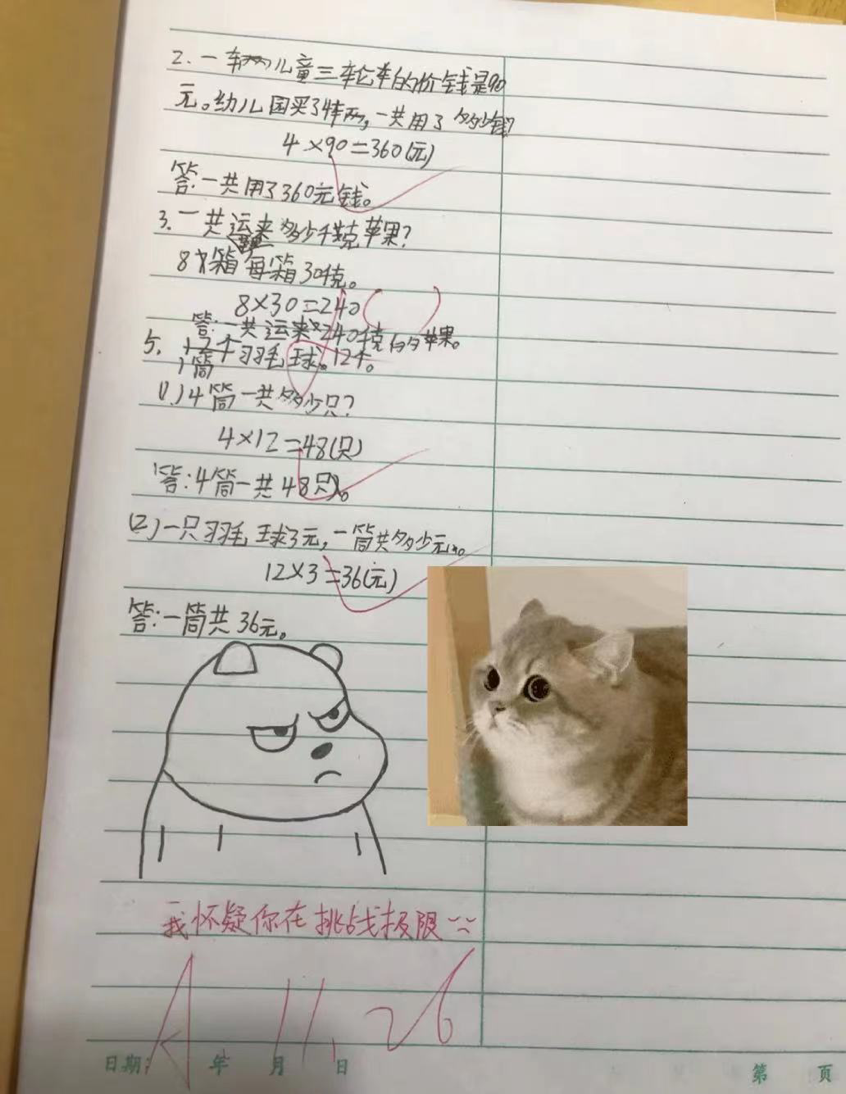 2.一车辆儿童三轮车的价钱是90
元。幼儿园买了4车辆,一共用了多少钱?
4×90=360(元)
答:一共用了360元钱。
3.一共运来多少千克苹果?
8箱 每箱30千克。
8×30=240
答:一共运来240千克的苹果。
5. 12个羽毛球。12个。
1筒
(1.)4筒一共多少只?
4×12=48(只)
答:4筒一共48只。
(2)一只羽毛球3元,一筒共多少元。
12×3=36(元)
答:一筒共36元。
我怀疑你在挑战极限
A 11.26
日期: 年 月 日
第 页